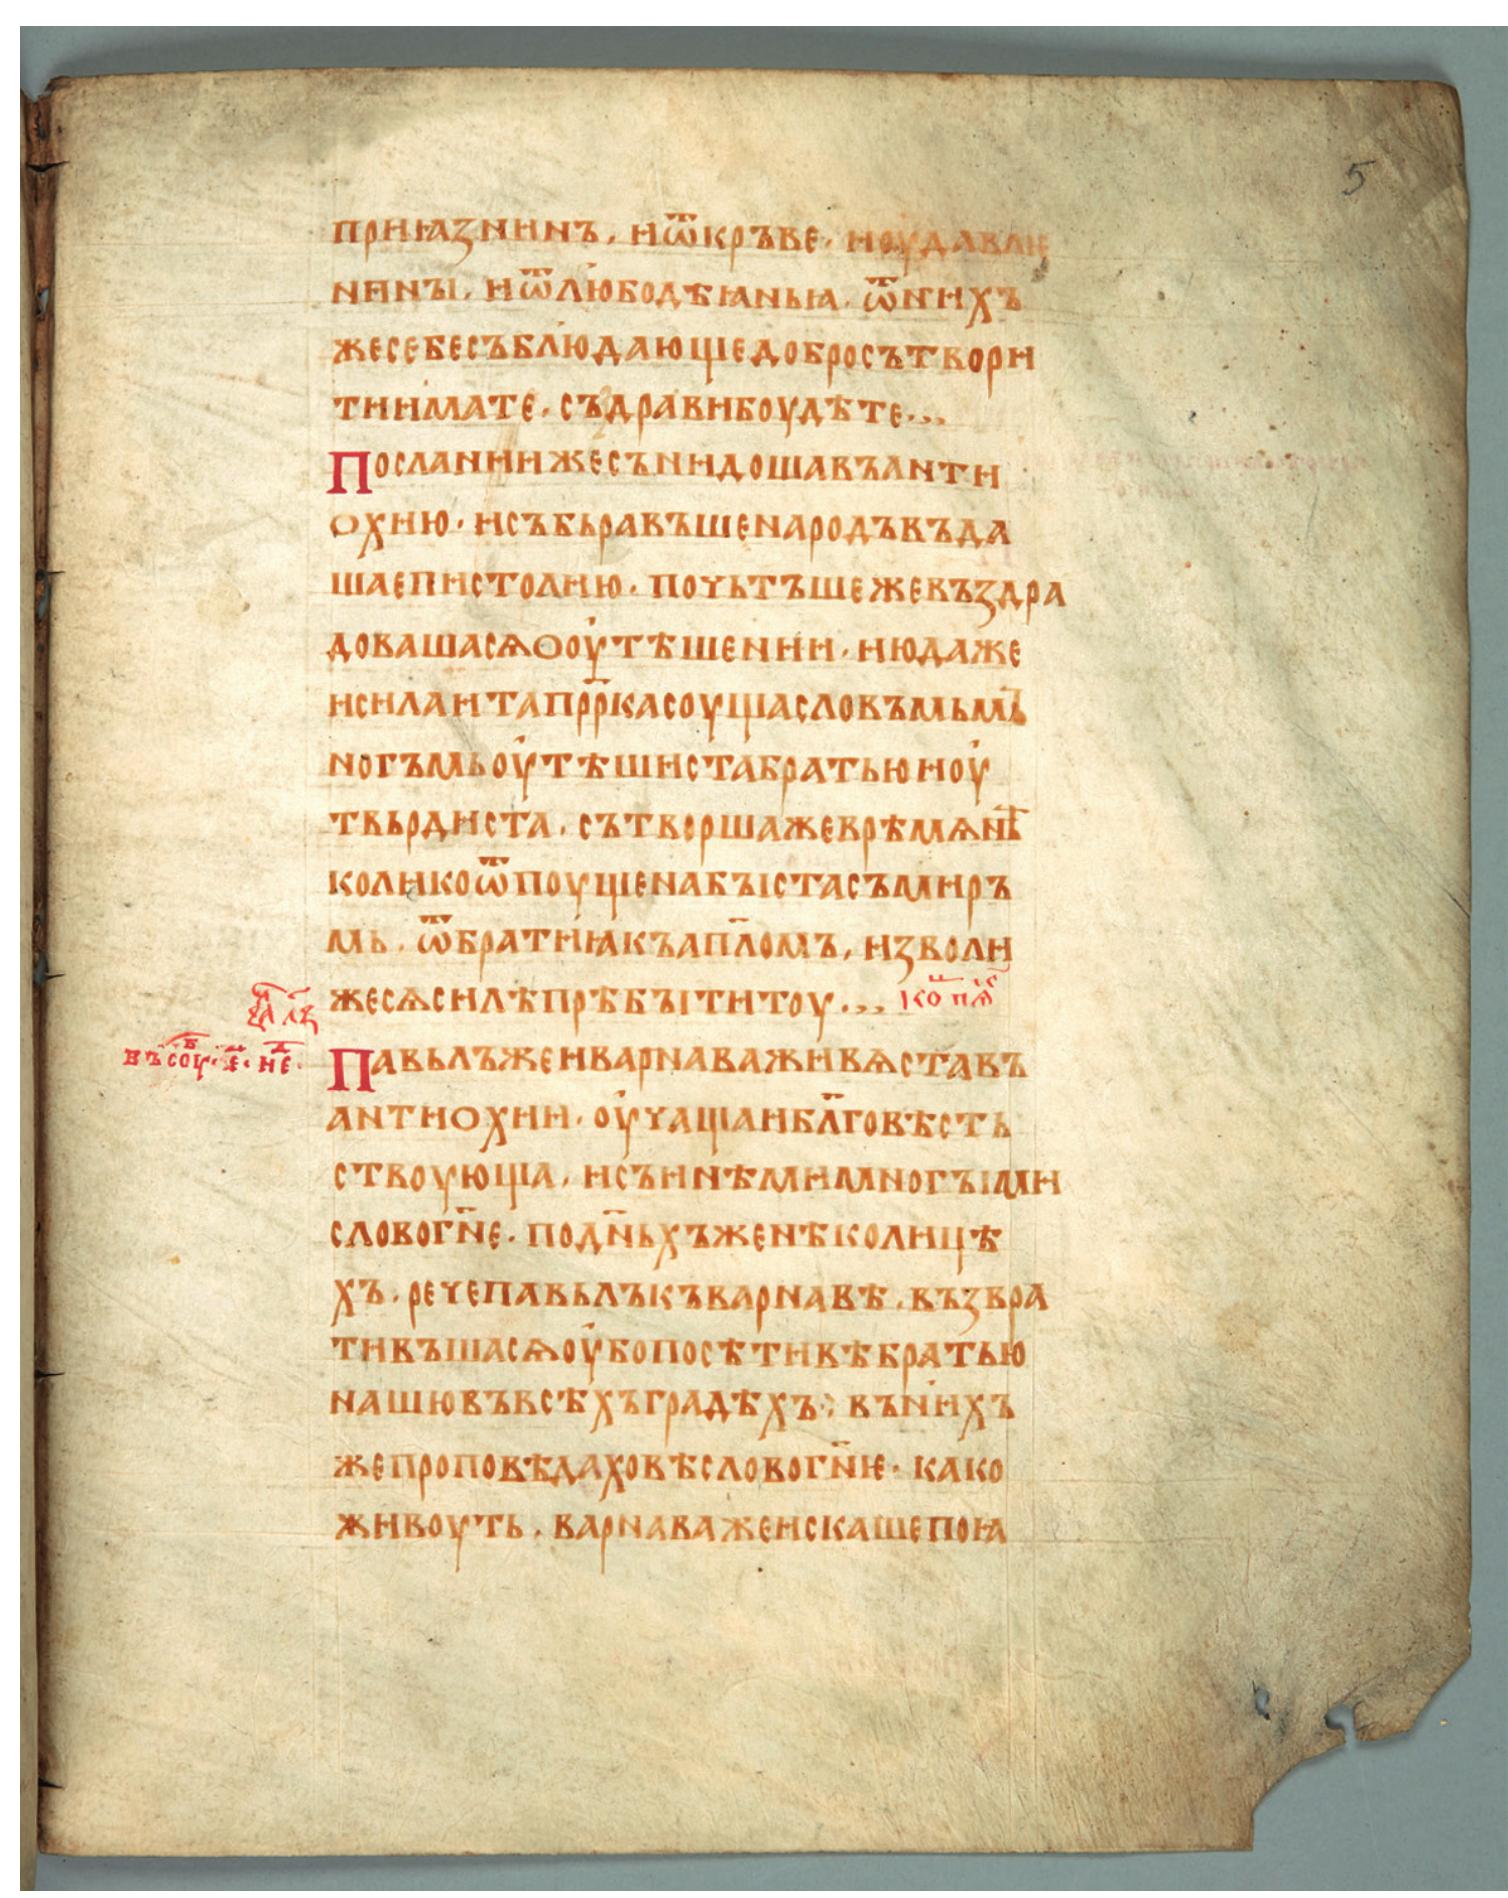 5
приꙗзнинъ. и ѿ кръве. и оудавле
нины. и ѿ любодѣꙗньꙗ. ѿ нихъ
же себе съблюдающе добро сътвори
ти имате. съдрави боудѣте...
Послании же съниидоша въ анти
охию. и събьравъше народъ въда
ша епистолию. почьтъше же въздра
доваша сѧ о оутѣшении. июда же
и сила и та пррка соуща словъмь мъ
ногъмь оутѣшиста братью и оу
твьрдиста. сътворша же врѣмѧ нѣ
колико ѿпоущена быста съ миръ
мь. ѿ братиꙗ къ аплмъ. изволи
же сѧ силѣ прѣбыти тоу... ко пѧ
въ соу. е. не.
Павьлъ же и варнава живѧста въ
антиохии. оучаща и блговѣсть
ствоующа. и съ инѣми многыими
слово гне. по дньхъ же нѣколицѣ
хъ. рече павьлъ къ варнавѣ. възвра
тивъша сѧ оубо посѣтивѣ братью
нашю въ всѣхъ градѣхъ: въ нихъ
же проповѣдаховѣ слово гнѥ. како
живоуть. варнава же искаше поꙗ